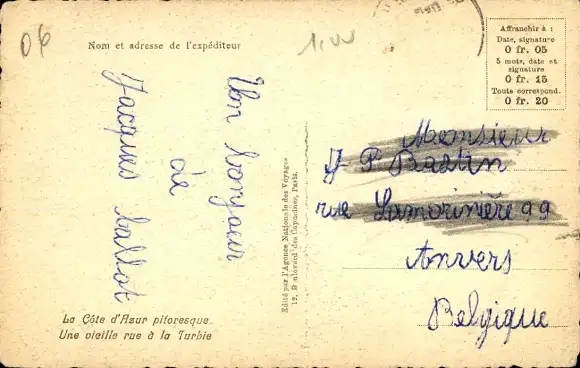 06
Nom et adresse de l'expéditeur
1.00
Affranchir à :
Date, signature
0 fr. 05
5 mots, date et
signature
0 fr. 15
Toute correspond.
0 fr. 20
Un bonjour
de
Jacques
Edité par l'Agence Nationale des Voyages
12, Boulevard des Capucines, Paris.
Monsieur
J P Bastin
rue Lamorinière 99
Anvers
Belgique
La Côte d'Azur pitoresque
Une vieille rue à la Turbie